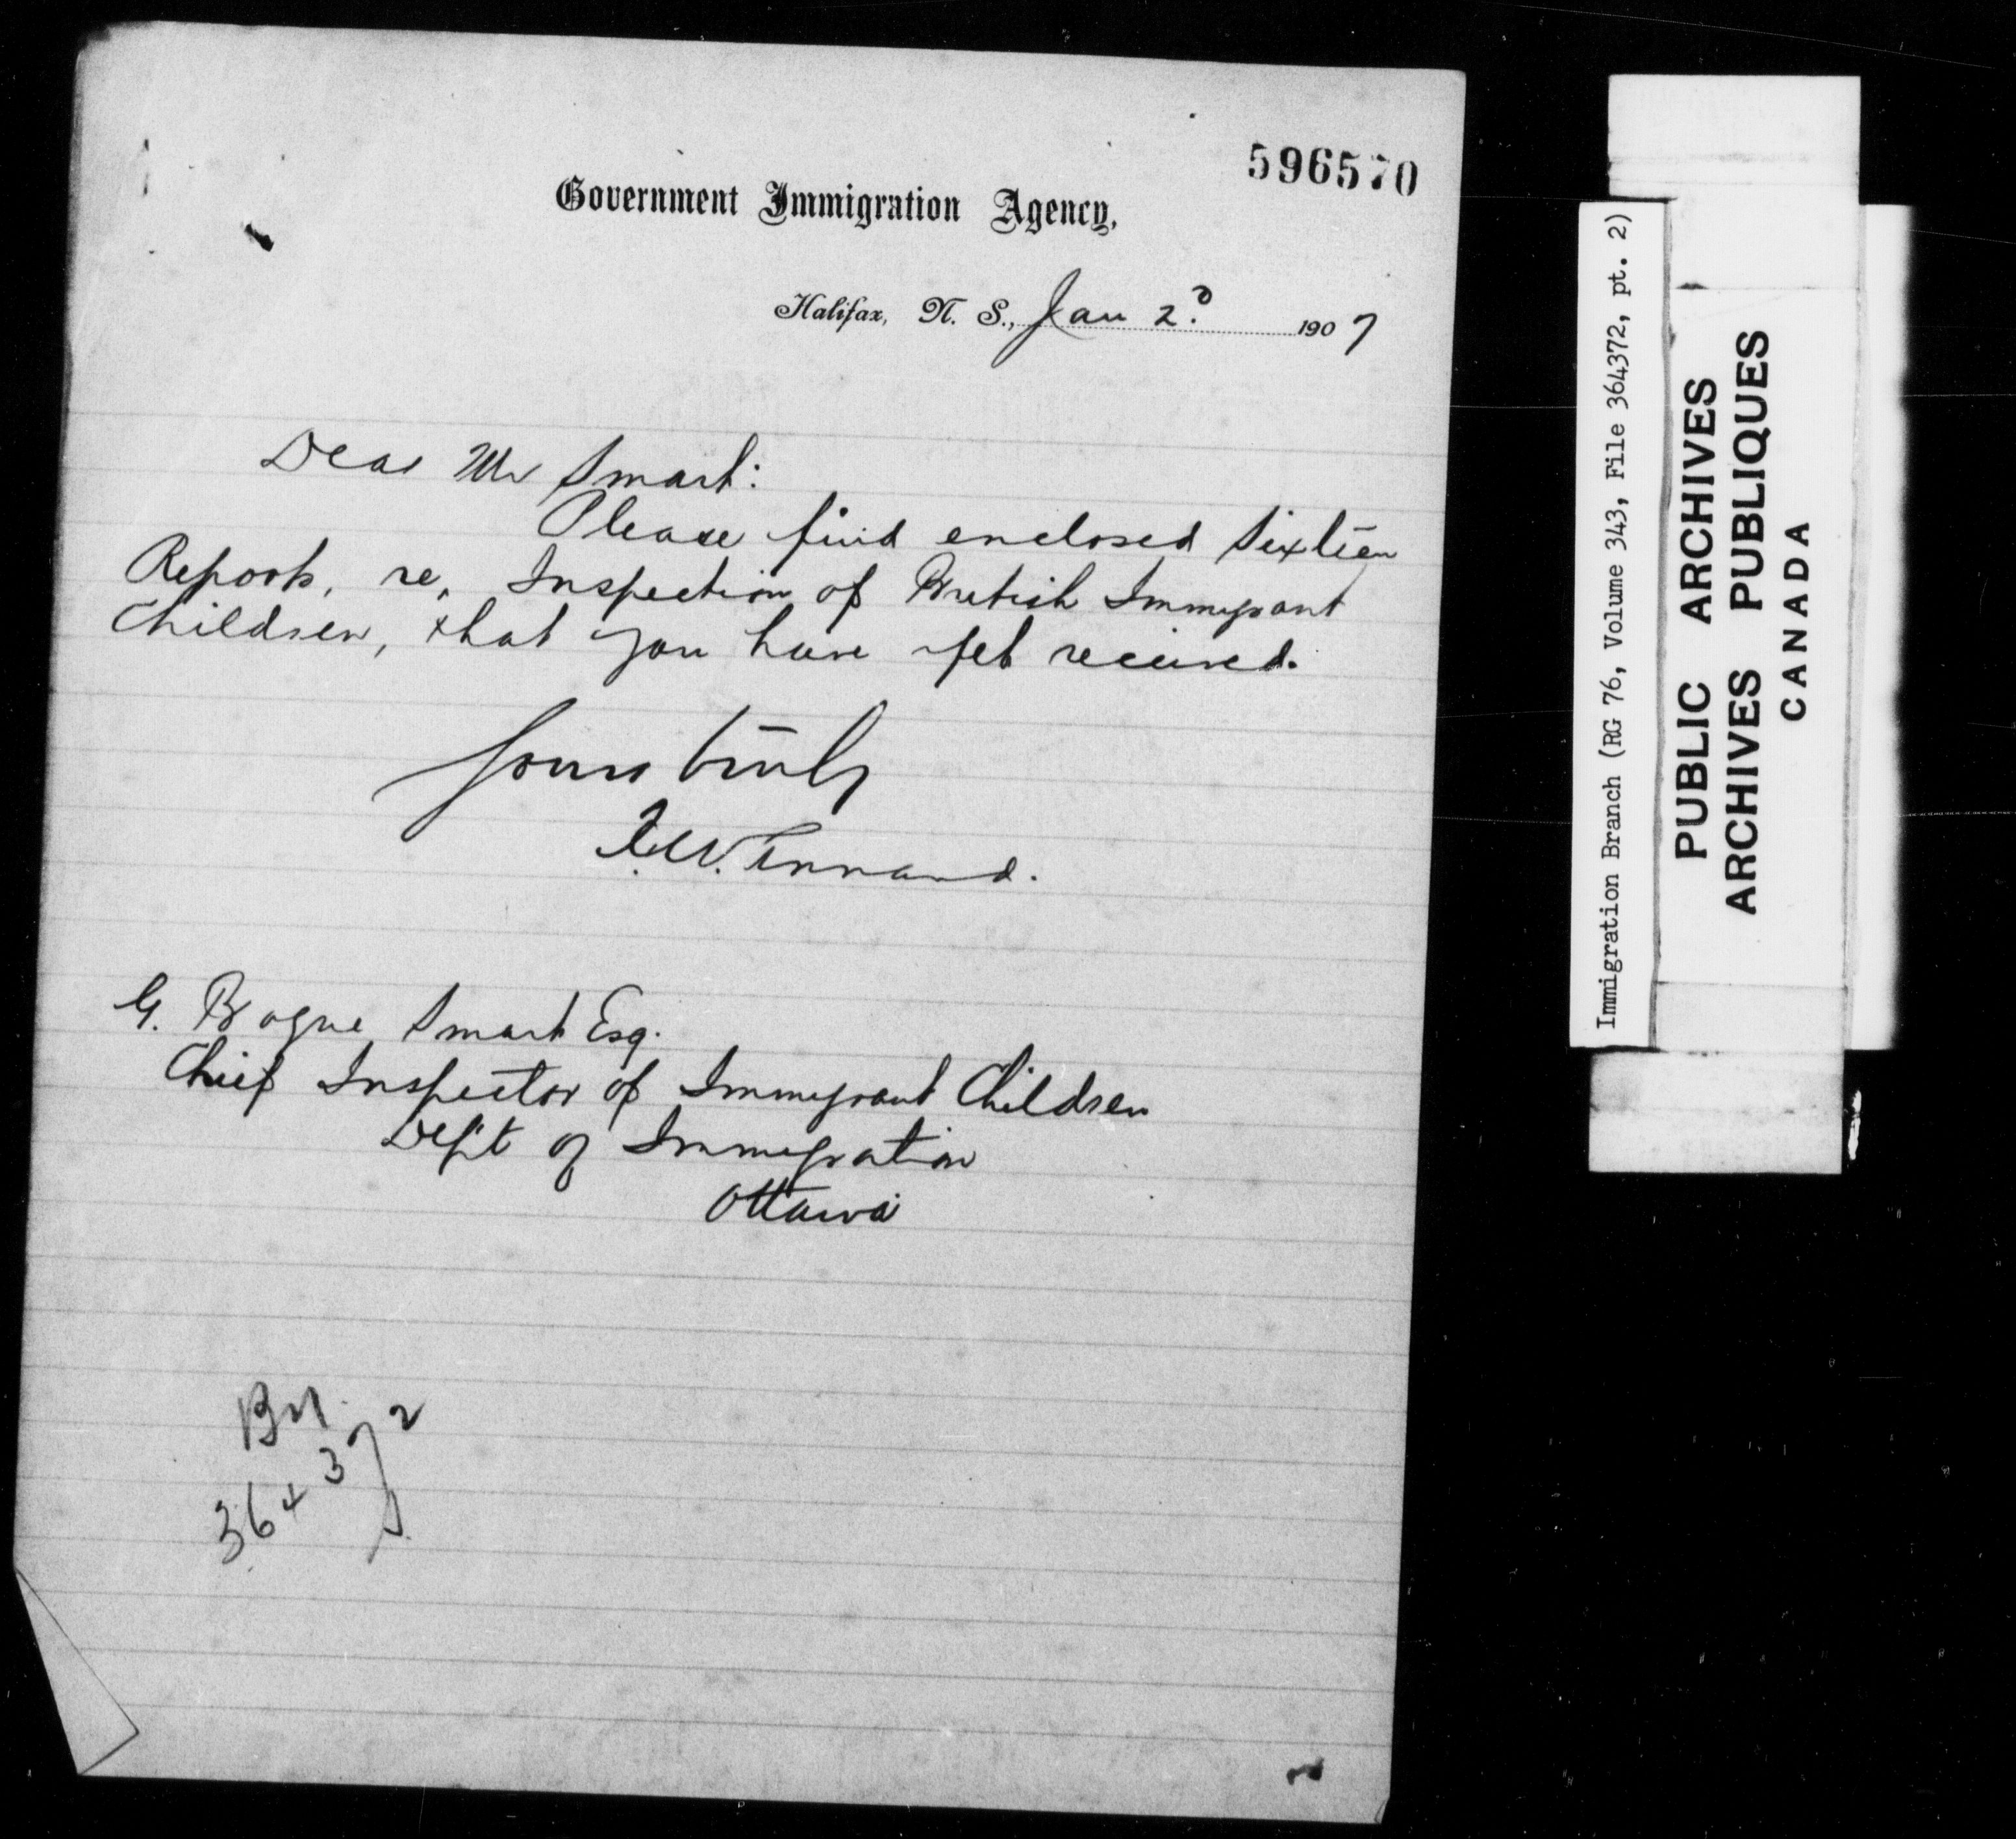 596570
Government Immigration Agency,
Halifax, N. S., Jan 2d 1907
Dear Mr Smart:
Please find enclosed Sixteen
Reports, re, Inspection of British Immigrant
Children, that you have yet received.
Yours truly
Annand.
G. Bogue Smart Esq.
Chief Inspector of Immigrant Children
Dept of Immigration
Ottawa
364372
Immigration Branch (RG 76, Volume 343, File 364372, pt. 2)
PUBLIC ARCHIVES
ARCHIVES PUBLIQUES
CANADA